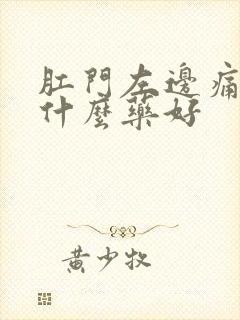 肛門左邊痛
什麼藥好
黄少牧